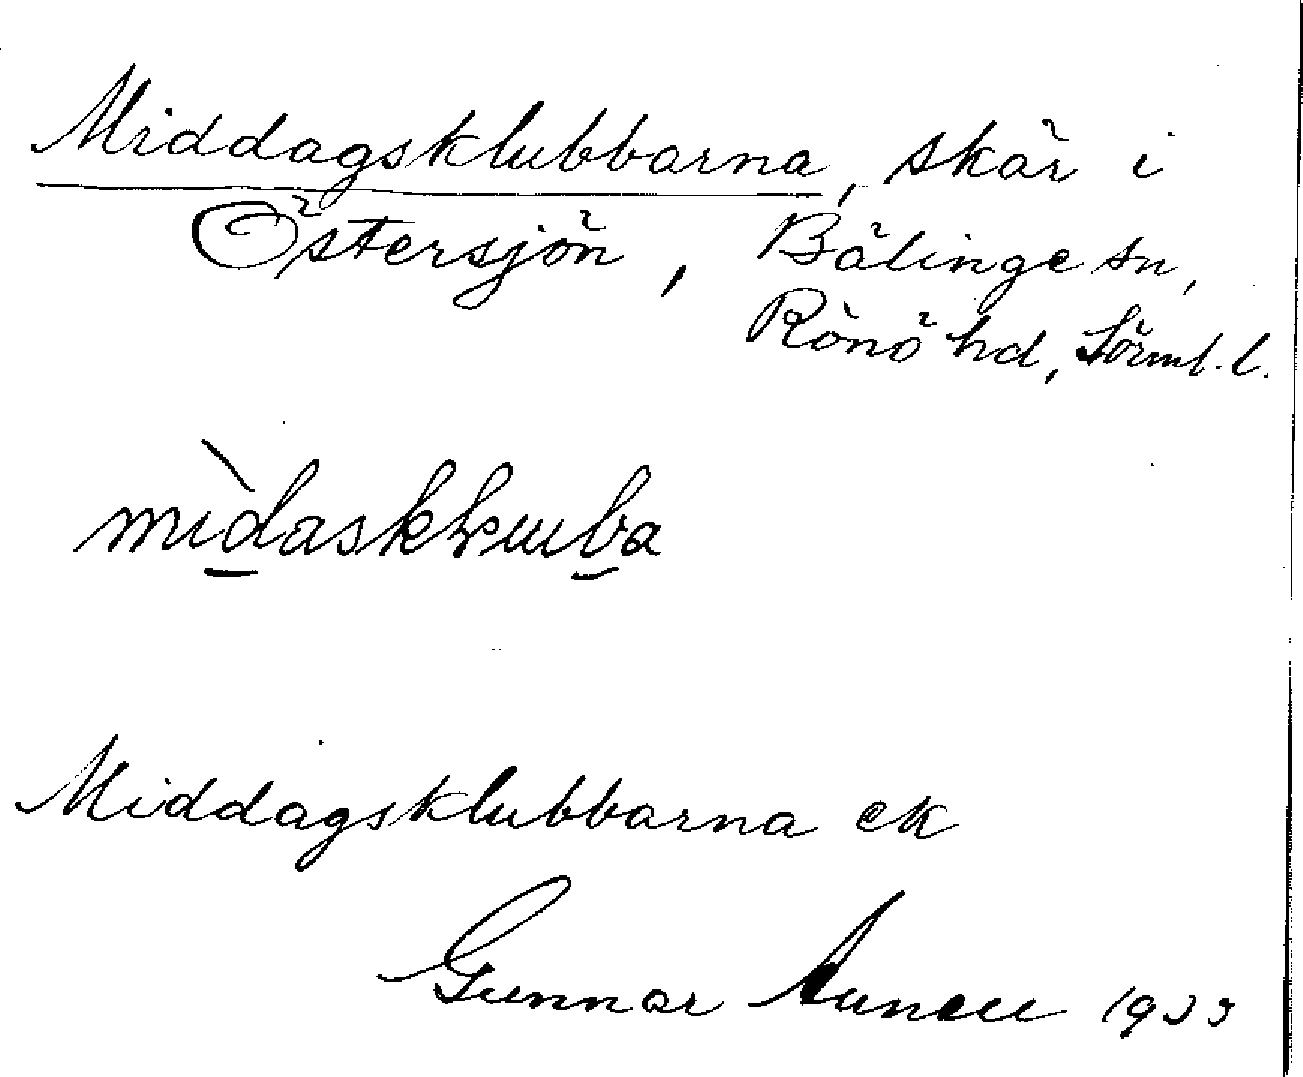 Middagsklubbarna, skär i
Östersjön, Bälinge sn,
Rönö hd, Sörml. l.
mìdasklumba
Middagsklubbarna ek
Gunnar 1933